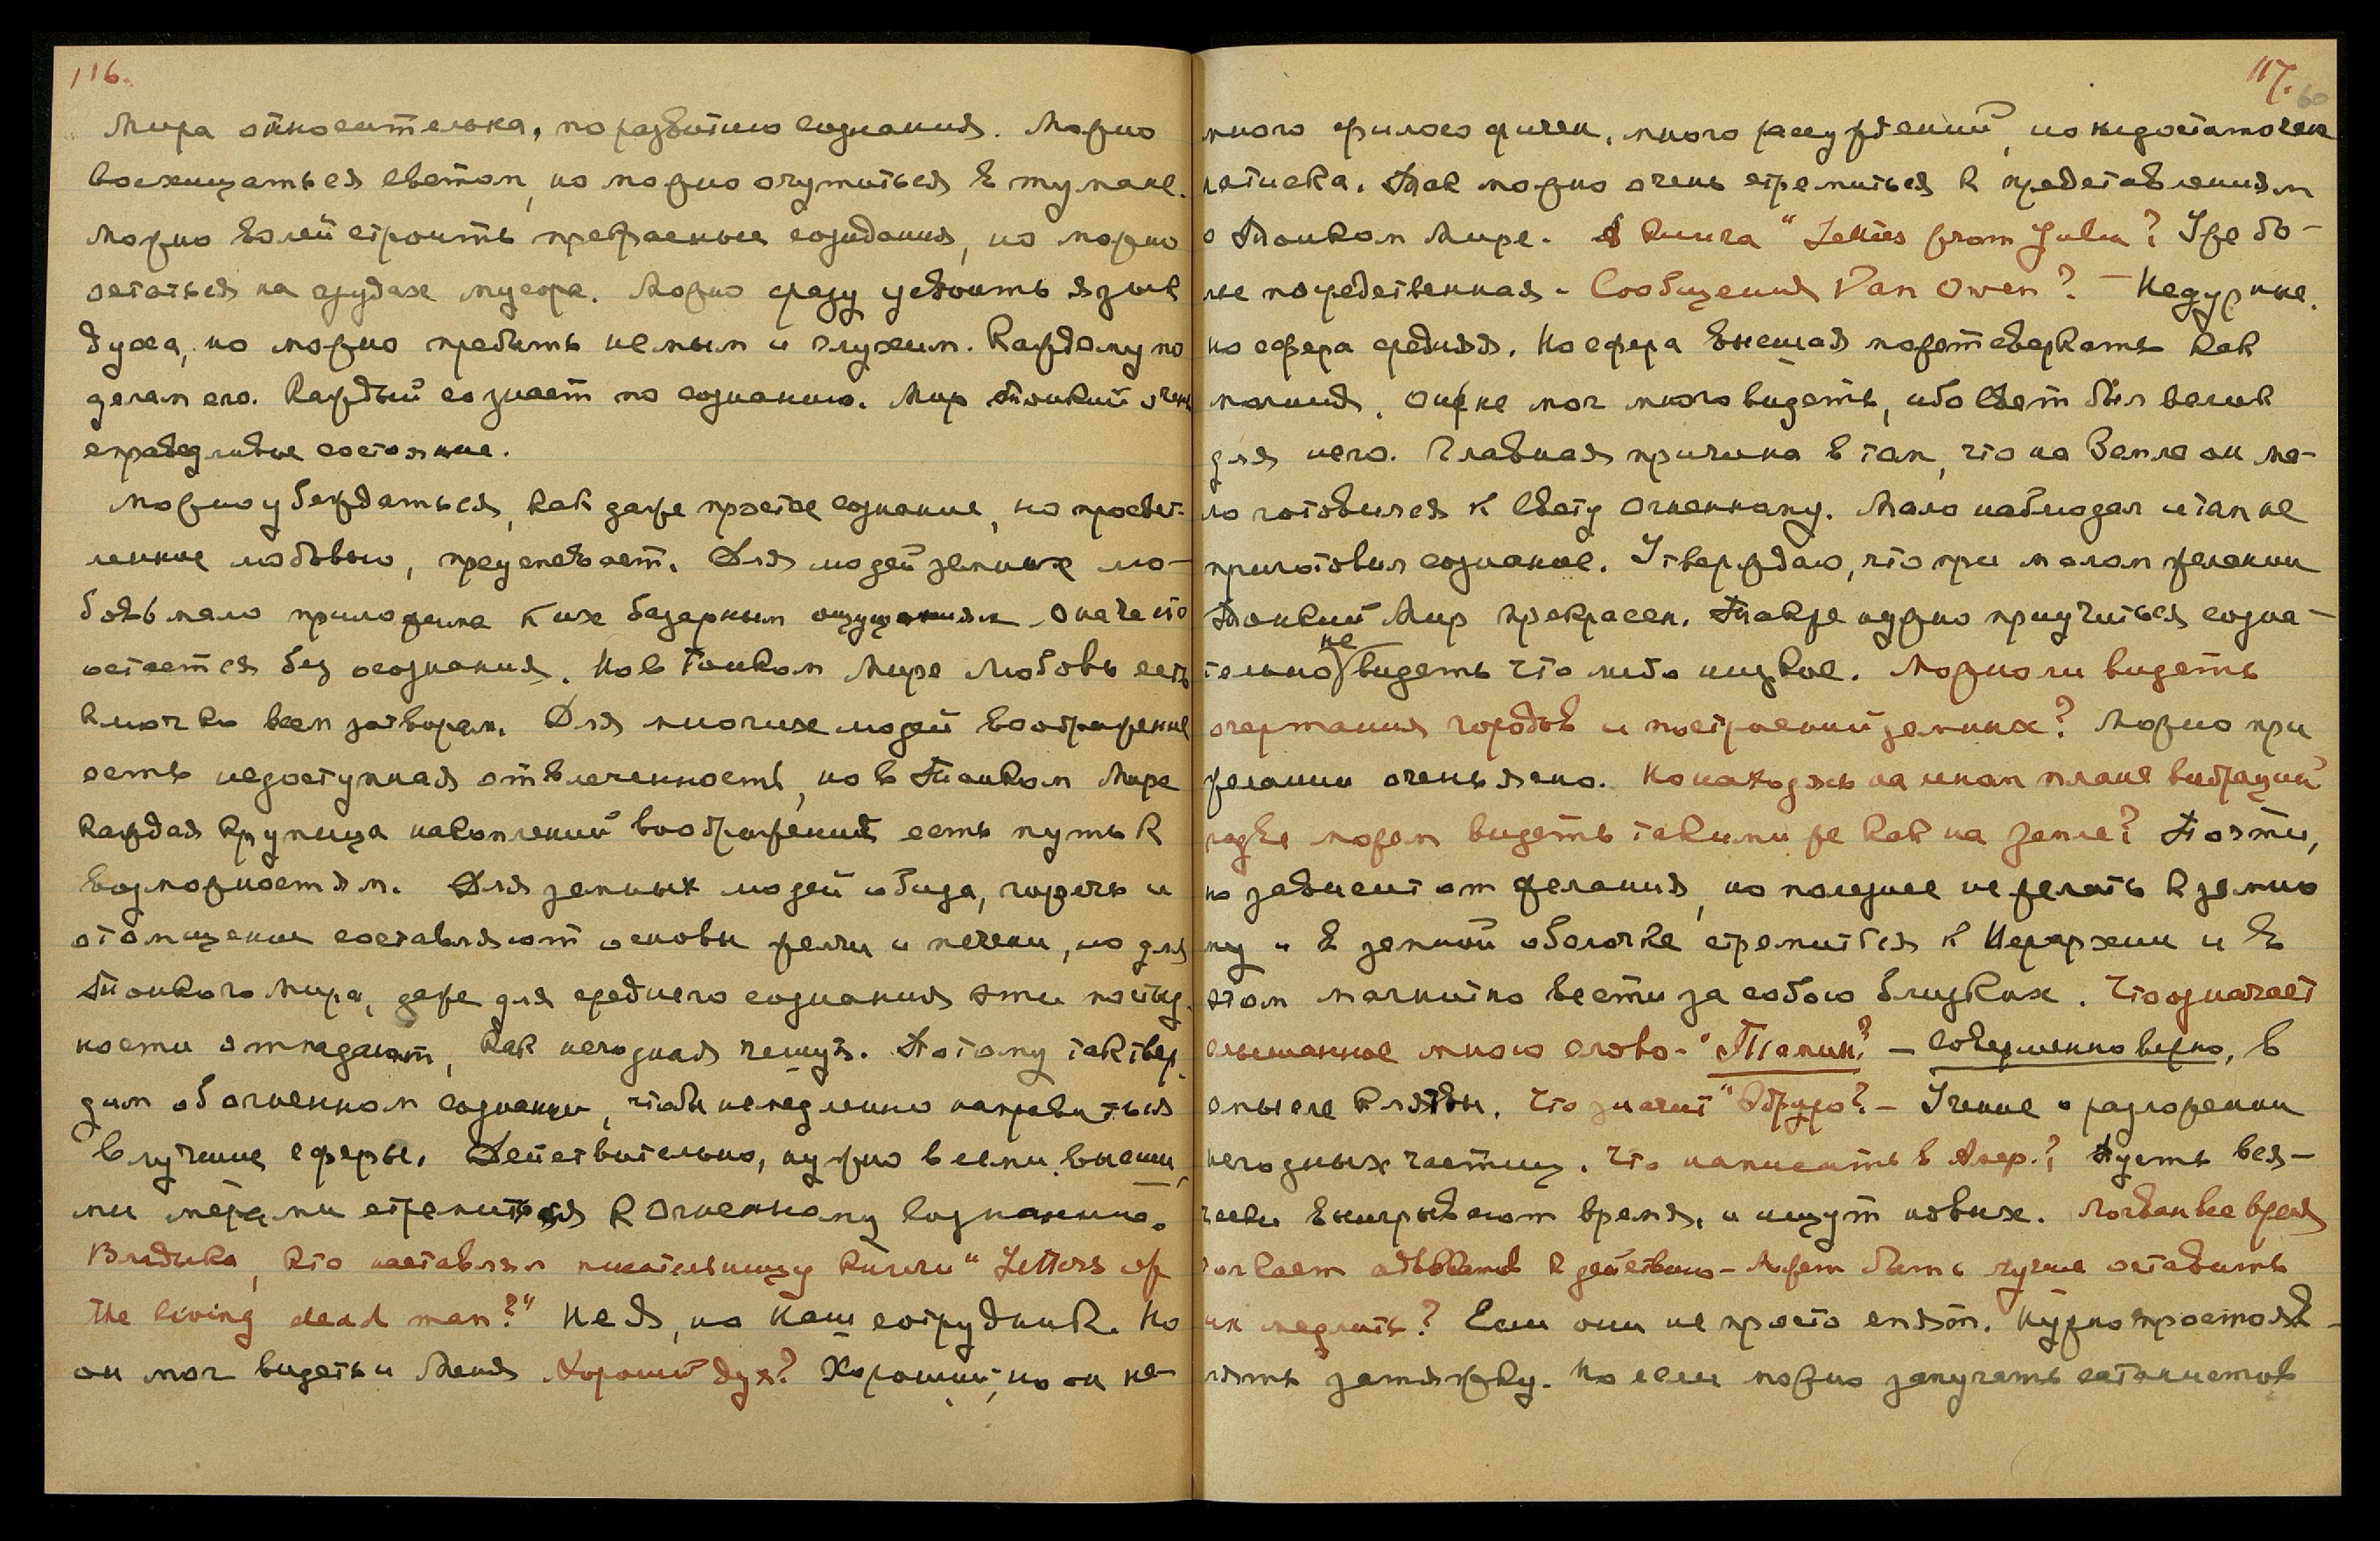 116.
Мира относительна, по развитию сознания. Можно
восхищаться светом, но можно очутиться в тумане.
Можно волей строить прекрасные создания, но можно
остаться на грудах мусора. Можно сразу усвоить язык
духа, но можно пребыть немым и глухим. Каждому по
делам его. Каждый сознает по сознанию. Мир Тонкий очень
справедливое состояние.
Можно убеждаться, как даже простое сознание, но просвет-
ленное любовью, преуспевает. Для людей земных лю-
бовь мало приложима к их базарным ощущениям. Она часто
остается без осознания. Но в Тонком Мире Любовь есть
ключ ко всем затворам. Для многих людей воображение
есть недоступная отвлеченность, но в Тонком Мире
каждая крупица накоплений воображения есть путь к
возможностям. Для земных людей обида, горечь и
отомщение составляют основы желчи и печени, но для
Тонкого Мира, даже для среднего сознания эти постыд-
ности отпадают, как негодная чешуя. Потому так твер-
дим об огненном сознании, чтобы немедленно направиться
в лучшие сферы. Действительно, нужно всеми внешни-
ми мерами стремиться к Огненному сознанию.
Владыка, кто наставлял писательницу книги "Letters of
the living dead man?" Не Я, но Наш сотрудник. Но
он мог видеть и Меня Хороший дух? Хороший, но он не-
117.
60
много философичен, много рассуждений, но недостаточен
натиска. Так можно очень стремиться к представлениям
о Тонком Мире. А книга "Letters from Julia? Уже бо-
лее посредственная. Сообщения Van Owen? – Недурные,
но сфера средняя. Но сфера высшая может сверкать как
молния. Он не мог много видеть, ибо Свет был велик
для него. Главная причина в том, что на Земле он ма-
ло готовился к Свету Огненному. Мало наблюдал и там не
приготовил сознание. Утверждаю, что при малом желании
Тонкий Мир прекрасен. Также нужно приучиться созна-
тельно не видеть что либо низкое. Можно ли видеть
очертания городов и построений земных? Можно при
желании очень ясно. Но находясь на ином плане вибраций
разве можем видеть такими же как на земле? Почти,
но зависит от желания, но полезнее не желать к земно
му и в земной оболочке стремиться к Иерархии и в
этом магнитно вести за собою близких. Что означает
слышанное мною слово – "Тламин? – Совершенно верно, в
смысле клятвы. Что значит "Обрузо? – Учение о разложении
негодных частиц. Что написать в Амер.? Пусть вся-
чески выигрывают время, и ищут новых. Логван все время
толкает адвокатов к действию – Может быть лучше оставить
их медлить? Если они не просто спят. Нужно простояв-
лять затяжку. Но если можно запугать сатанистов